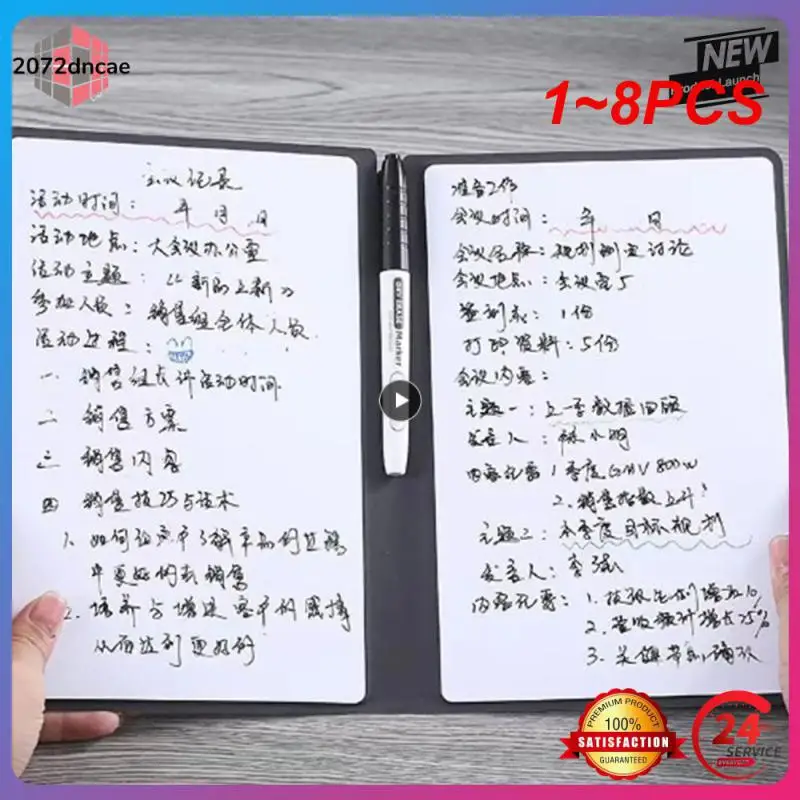 2072dncae
NEW
Product Launch
1~8PCS
会议记录
活动时间： 年 月 日
活动地点：大会议办公室
活动主题：
参加人员：销售组全体人员
活动过程：
一 销售组长讲活动时间
二 销售方案
三 销售内容
四 销售技巧与话术
1、如何
2、培养与增进客户的感情
从而达到更好的
DRY ERASE Marker
准备工作
会议时间： 年 日
会议名称：规划制定讨论
会议地点：会议室5
签到表：1份
打印资料：5份
会议内容：
主题一：上一季数据回顾
发言人：林小明
内容记要 1季度GMV 800w
2.销售指数上升
主题二：本季度目标规划
发言人：李强
内容记要：1.
2.
3.
PREMIUM PRODUCT
100%
SATISFACTION
GUARANTEED
24
SERVICE
EVERYDAY